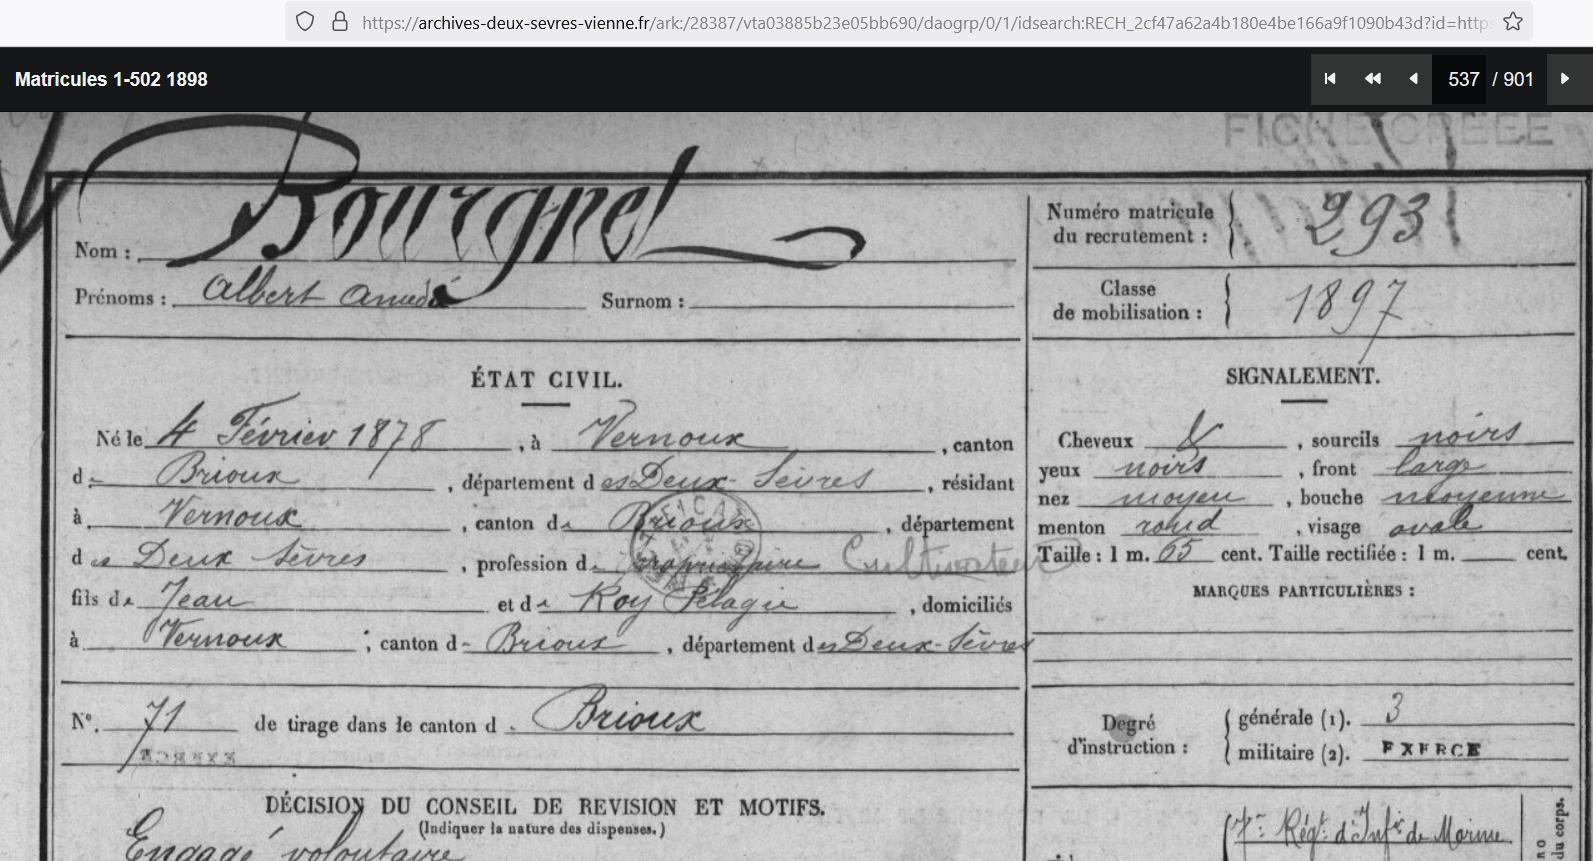 https://archives-deux-sevres-vienne.fr/ark:/28387/vta03885b23e05bb690/daogrp/0/1/idsearch:RECH_2cf47a62a4b180e4be166a9f1090b43d?id=https
Matricules 1-502 1898
537 / 901
FICHE CREEE
Nom : Bourgnel
Prénoms : Albert Amédé Surnom :
Numéro matricule du recrutement : 293
Classe de mobilisation : 1897
ÉTAT CIVIL.
Né le 4 Février 1878, à Vernoux, canton
de Brioux, département des Deux-Sèvres, résidant
à Vernoux, canton de Brioux, département
des Deux Sèvres, profession de propriétaire Cultivateur
fils de Jean et de Roy Pélagie, domiciliés
à Vernoux ; canton de Brioux, département des Deux-Sèvres
N° 71 de tirage dans le canton d. Brioux
DÉCISION DU CONSEIL DE REVISION ET MOTIFS.
(Indiquer la nature des dispenses.)
Engagé volontaire
SIGNALEMENT.
Cheveux &, sourcils noirs
yeux noirs, front large
nez moyen, bouche moyenne
menton rond, visage ovale
Taille : 1 m. 65 cent. Taille rectifiée : 1 m. cent.
MARQUES PARTICULIÈRES :
Degré d'instruction :
générale (1). 3
militaire (2). EXERCE
7e Régt. d'Infie de Marine
du corps.